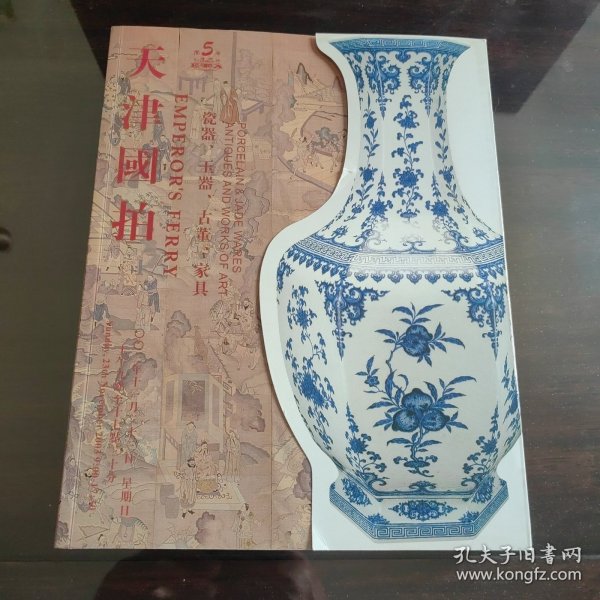 天津國拍
EMPEROR'S FERRY
瓷器、玉器、古董、家具
PORCELAIN & JADE WARES
ANTIQUES AND WORKS OF ART
星期日
孔夫子旧书网
www.kongfz.com